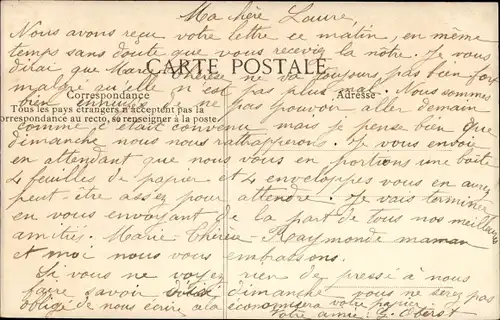 Ma chère Laure,
Nous avons reçu votre lettre ce matin, en même
temps sans doute que vous receviez la nôtre. Je vous
dirai que Marie Thérèse ne va toujours pas bien fort
CARTE POSTALE
malgré qu'elle n'est pas plus mal. Nous sommes
Correspondance
Adresse
bien ennuyés ne pas pouvoir aller demain
Tous les pays étrangers n'acceptent pas la
correspondance au recto, se renseigner à la poste
comme c'était convenu mais je pense bien que
dimanche nous nous rattraperons. Je vous envoie
en attendant que nous vous en portions une boîte
4 feuilles de papier et 4 enveloppes vous en aurez
peut-être assez pour attendre. Je vais terminer
en vous envoyant de la part de tous nos meilleures
amitiés. Marie-Thérèse - Raymonde maman
et moi nous vous embrassons.
Si vous ne voyez rien de pressé à nous
faire savoir dimanche vous ne serez pas
obligé de nous écrire a la économisera votre papier.
Votre amie: G. Oberst